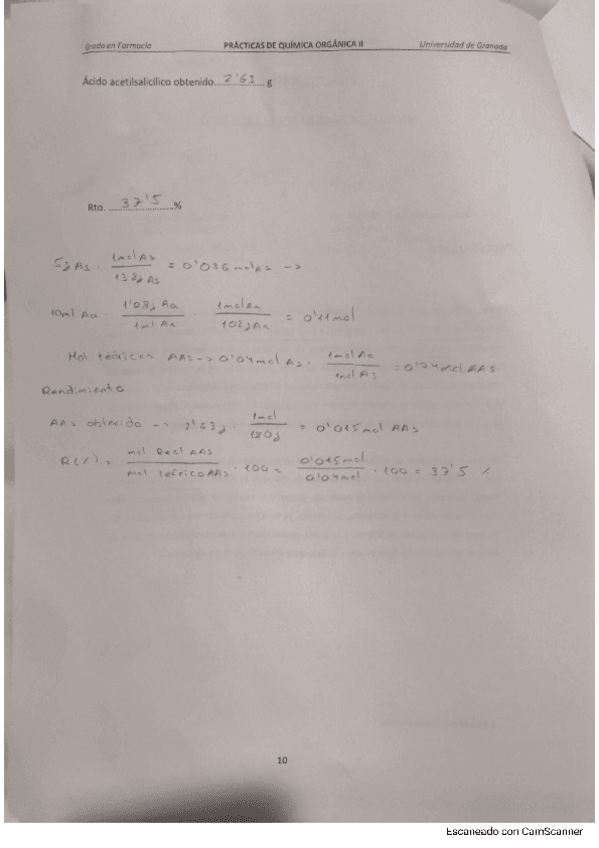 Grado en Farmacia PRÁCTICAS DE QUÍMICA ORGÁNICA II Universidad de Granada
Ácido acetilsalicílico obtenido. 2'63 g
Rto. 37'5 %
5g As · 1mol As / 138g As = 0'036 mol As ->
10ml Aa · 1'08g Aa / 1ml Aa · 1mol Aa / 102g Aa = 0'11 mol
Mol teóricos AAS -> 0'04 mol As · 1mol Aa / 1mol As = 0'04 mol AAS
Rendimiento
AAS obtenido -> 2'63g · 1mol / 180g = 0'015 mol AAS
R(%) = mol Real AAS / mol teórico AAS · 100 = 0'015 mol / 0'04 mol · 100 = 37'5 %
10
Escaneado con CamScanner